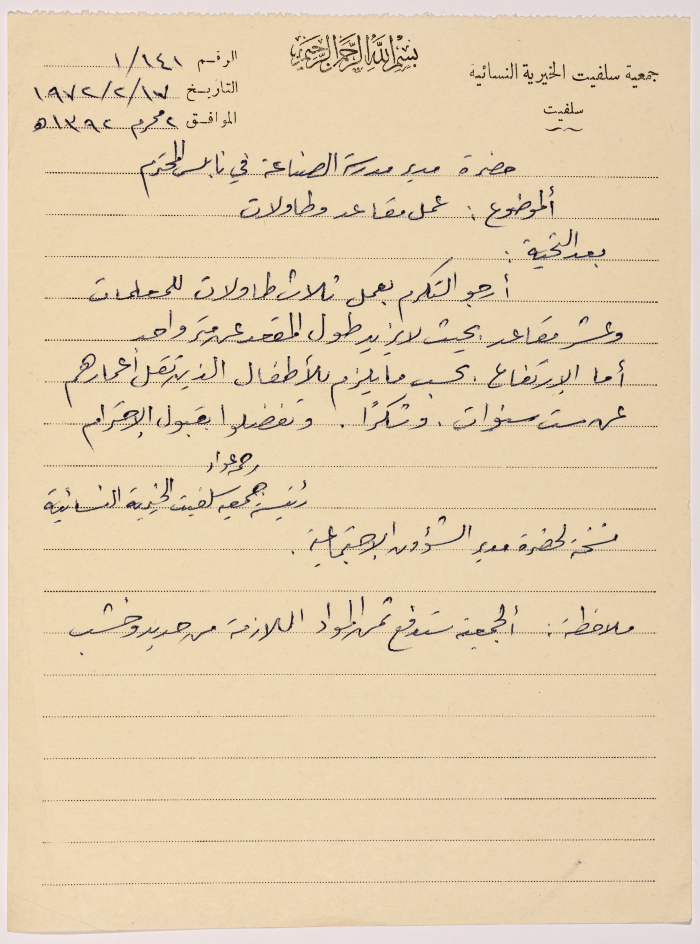 بسم الله الرحمن الرحيم
جمعية سلفيت الخيرية النسائية
سلفيت
الرقم ١/١٤١
التاريخ ١٩٧٢/٢/١٧
الموافق ٢ محرم ١٣٩٢ه
حضرة مدير مدرسة الصناعة في نابلس المحترم
ألموضوع : عمل مقاعد وطاولات
بعد التحية :
أرجو التكرم بعمل ثلاث طاولات للمعلمات
وعشر مقاعد بحيث لا يزيد طول المقعد عن متر واحد
أما الإرتفاع بحسب ما يلزم للأطفال الذين تقل أعمارهم
عن ست سنوات . وشكرًا . وتفضلوا بقبول الإحترام
عواد
رئيسة جمعية سلفيت الخيرية النسائية
نسخة لحضرة مدير الشؤون الإجتماعية .
ملاحظة : ألجمعية ستدفع ثمن المواد اللازمة من حديد وخشب